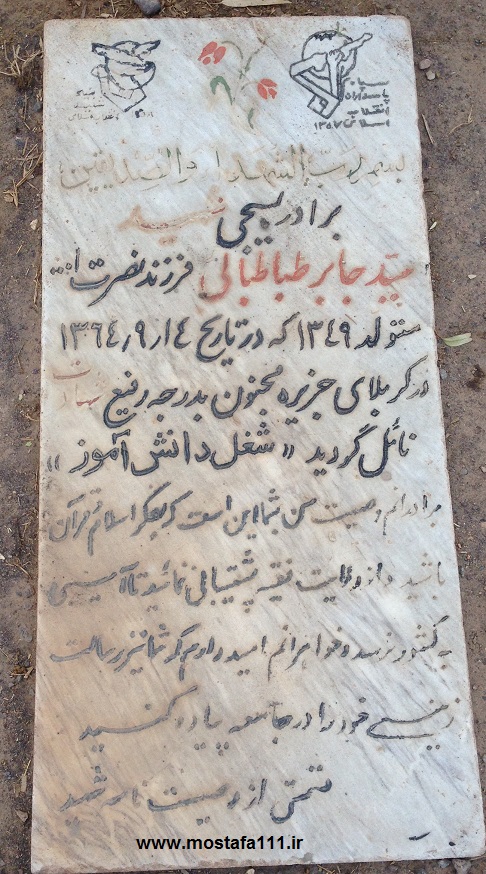 سپاه
پاسداران
انقلاب
اسلامی ۱۳۵۷
بسم رب الشهداء و الصدیقین
برادر بسیجی شهید
سید جابر طباطبائی فرزند نصرت الله
متولد ۱۳۴۹ که در تاریخ ۱۴ر۹ر۱۳۶۴
در کربلای جزیره مجنون بدرجه رفیع شهادت
نائل گردید «شغل دانش آموز»
برادرانم وصیت من بشما این است که بفکر اسلام و قرآن
باشید و از ولایت فقیه پشتیبانی نمائید تا آسیبی
به کشور نرسد و خواهرانم امیدوارم که شما نیز رسالت
زینبی خود را در جامعه پیاده کنید
قسمتی از وصیت نامه شهید
www.mostafa111.ir